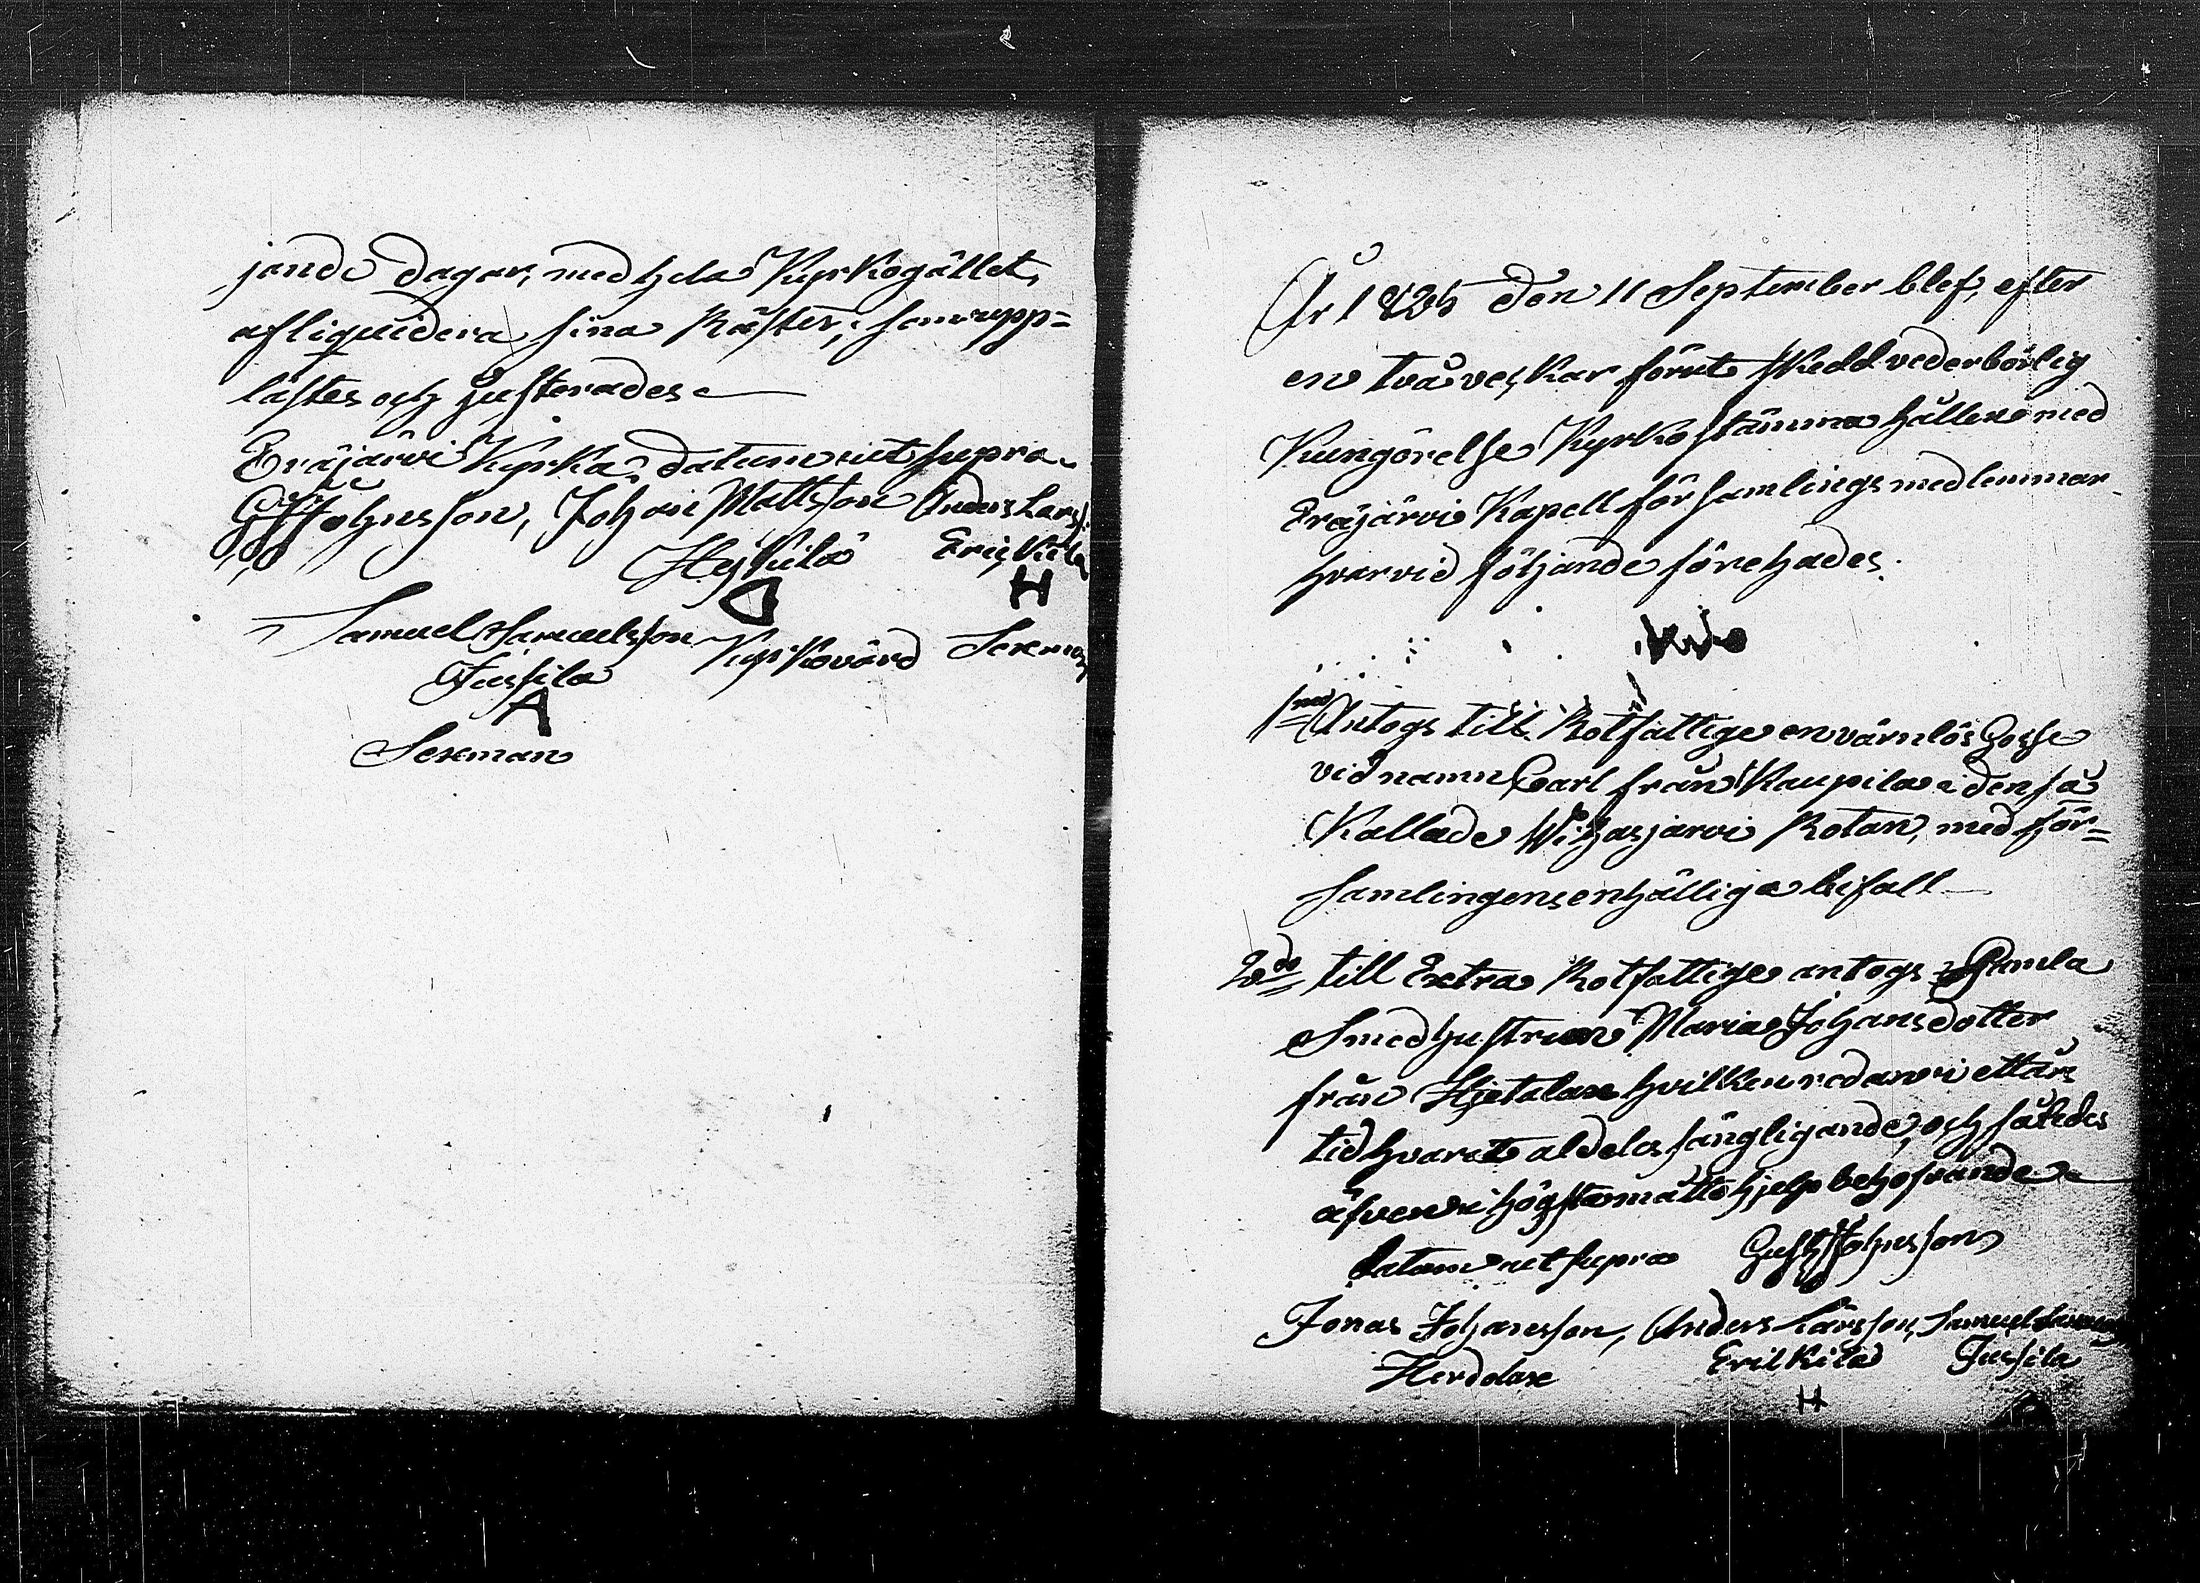 jande dagar, med hela Kyrkogället,
afliquidera sina Räster, som upp=
lästes och justerades.
Eräjärvi Kyrka, datum ut supra.
Johnsson, Johan Mattsson Anders Larss:
Heikkilä Eric Kilä
H
Samuel Samuelsson Kyrkovärd Sexman
Jussila
A
Sexman
År 1825 den 11 September blef, efter
en två veckor förut skedd vederbörlig
Kungörelse Kyrkostämma hållen med
Eräjärvi Kapell församlings medlemmar
hvarvid följande förehades.
1mo Antogs till Rotfattige en värnlös Gosse
vid namn Carl från Kaupila i den så
Kallade Wihasjärvi Rotan, med för=
samlingens enhälliga bifall
2do till Extra Rotfattige antogs Gamla
Smedhustrun Maria Johansdotter
från Hjetalax hvilken redan i ett års
tid hvarit aldeles sängliggande, och således
äfven i högsta måtto hjelp behofvande
Datum ut supra Gust Johnsson
Jonas Johansson, Anders Larsson, Samuel
Herdolax Erik Kilä Jussila
H